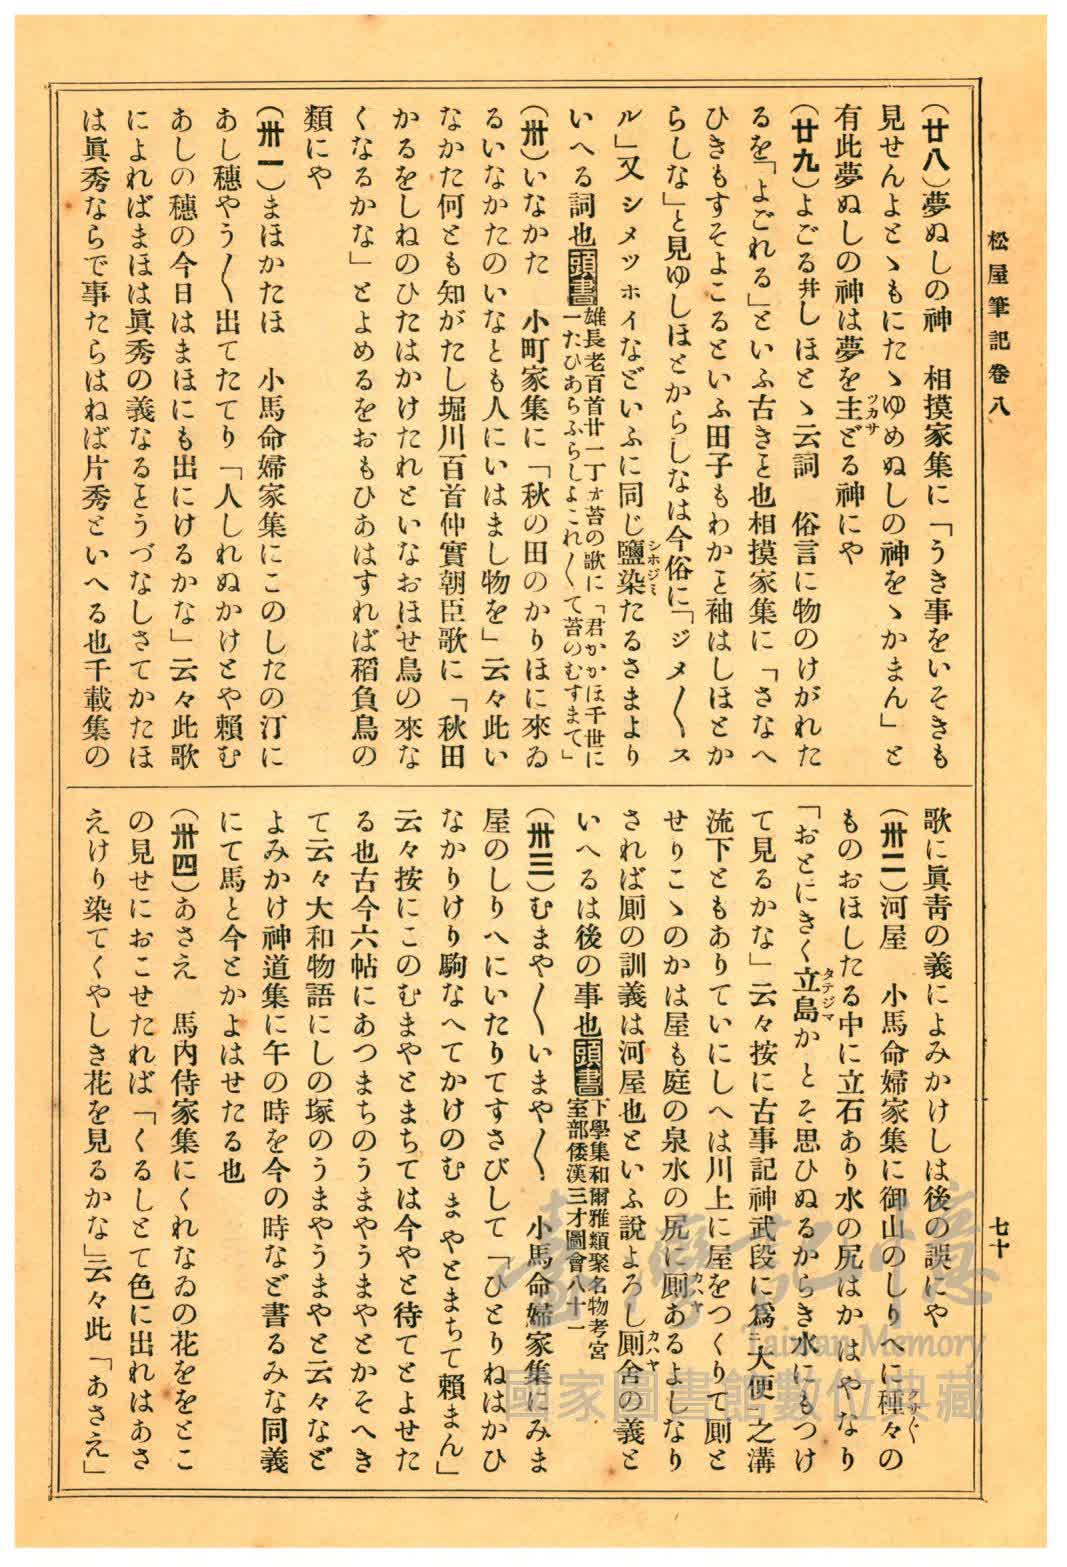 松屋筆記卷八
七十
(廿八)夢ぬしの神　相摸家集に「うき事をいそきも
見せんよとゝもにたゝゆめぬしの神をゝかまん」と
有此夢ぬしの神は夢を主どる神にや
(廿九)よごる幷しほとゝ云詞　俗言に物のけがれた
るを「よごれる」といふ古きこと也相摸家集に「さなへ
ひきもすそよこるといふ田子もわかこと袖はしほとか
らしな」と見ゆしほとからしなは今俗に「ジメ〳〵ス
ル」又シメッホイなどいふに同じ鹽染たるさまより
いへる詞也頭書雄長老百首廿一丁ォ苔の歌に「君かかほ千世に
一たひあらふらしよこれ〳〵て苔のむすまて」
(卅)いなかた　小町家集に「秋の田のかりほに來ゐ
るいなかたのいなとも人にいはまし物を」云々此い
なかた何とも知がたし堀川百首仲實朝臣歌に「秋田
かるをしねのひたはかけたれといなおほせ鳥の來な
くなるかな」とよめるをおもひあはすれば稻負鳥の
類にや
(卅一)まほかたほ　小馬命婦家集にこのしたの汀に
あし穗やう〳〵出てたてり「人しれぬかけとや賴む
あしの穗の今日はまほにも出にけるかな」云々此歌
によればまほは眞秀の義なるとうづなしさてかたほ
は眞秀ならで事たらはねば片秀といへる也千載集の
歌に眞靑の義によみかけしは後の誤にや
(卅二)河屋　小馬命婦家集に御山のしりへに種々の
ものおほしたる中に立石あり水の尻はかはやなり
「おとにきく立島かとそ思ひぬるからき水にもつけ
て見るかな」云々按に古事記神武段に爲大便之溝
流下ともありていにしへは川上に屋をつくりて厠と
せりこゝのかは屋も庭の泉水の尻に厠あるよしなり
されば厠の訓義は河屋也といふ說よろし厠舍の義と
いへるは後の事也頭書下學集和爾雅類聚名物考宮
室部倭漢三才圖會八十一
(卅三)むまや〳〵いまや〳〵　小馬命婦家集にみま
屋のしりへにいたりてすさびして「ひとりねはかひ
なかりけり駒なへてかけのむまやとまちて賴まん」
云々按にこのむまやとまちては今やと待てとよせた
る也古今六帖にあつまちのうまやうまやとかそへき
て云々大和物語にしの塚のうまやうまやと云々など
よみかけ神道集に午の時を今の時など書るみな同義
にて馬と今とかよはせたる也
(卅四)あさえ　馬內侍家集にくれなゐの花ををとこ
の見せにおこせたれば「くるしとて色に出れはあさ
えけり染てくやしき花を見るかな」云々此「あさえ」
ツカサ
シホジミ
クサグ
タテジマ
カハヤ
カハヤ
臺灣記憶
Taiwan Memory
國家圖書館數位典藏